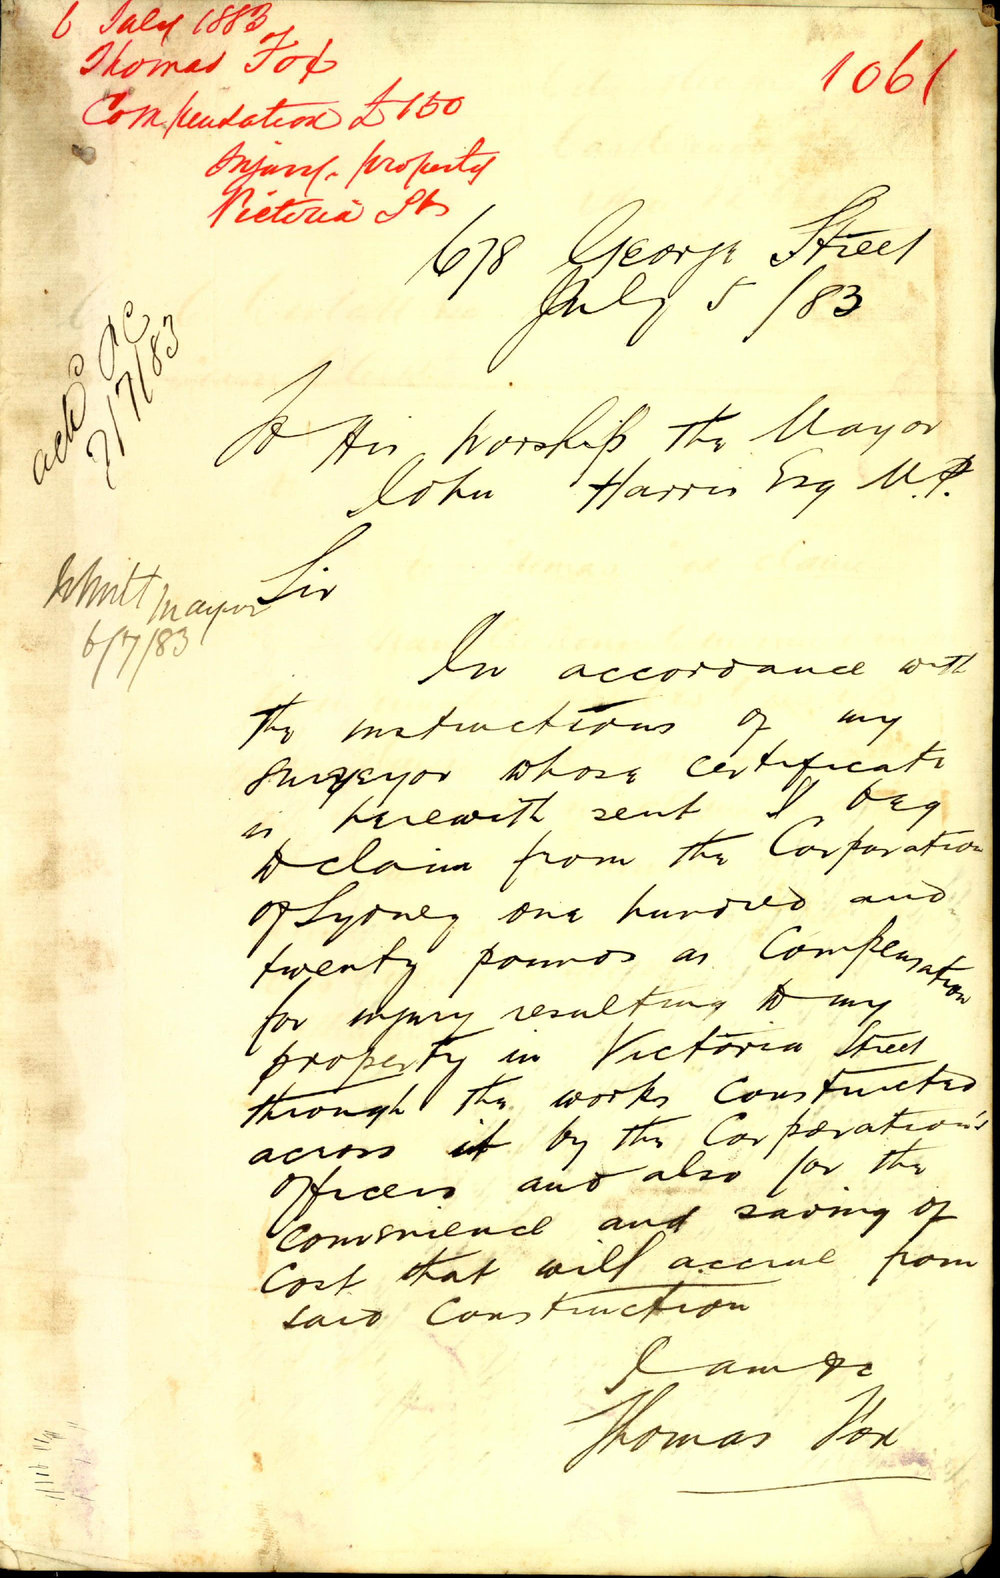 6 July 1883
Thomas Fox
Compensation £150
Injury. property
Victoria St
1061
678 George Street
July 5/83
ackd &c
7/7/83
To His Worship the Mayor
John Harris Esq M.P.
Mayor
6/7/83
Sir
In accordance with
the instructions of my
surveyor whose certificate
is herewith sent I beg
to claim from the Corporation
of Sydney one hundred and
twenty pounds as Compensation
for injury resulting to my
property in Victoria Street
through the works constructed
across it by the Corporation's
Officers and also for the
convenience and saving of
cost that will accrue from
said construction
I am &c
Thomas Fox